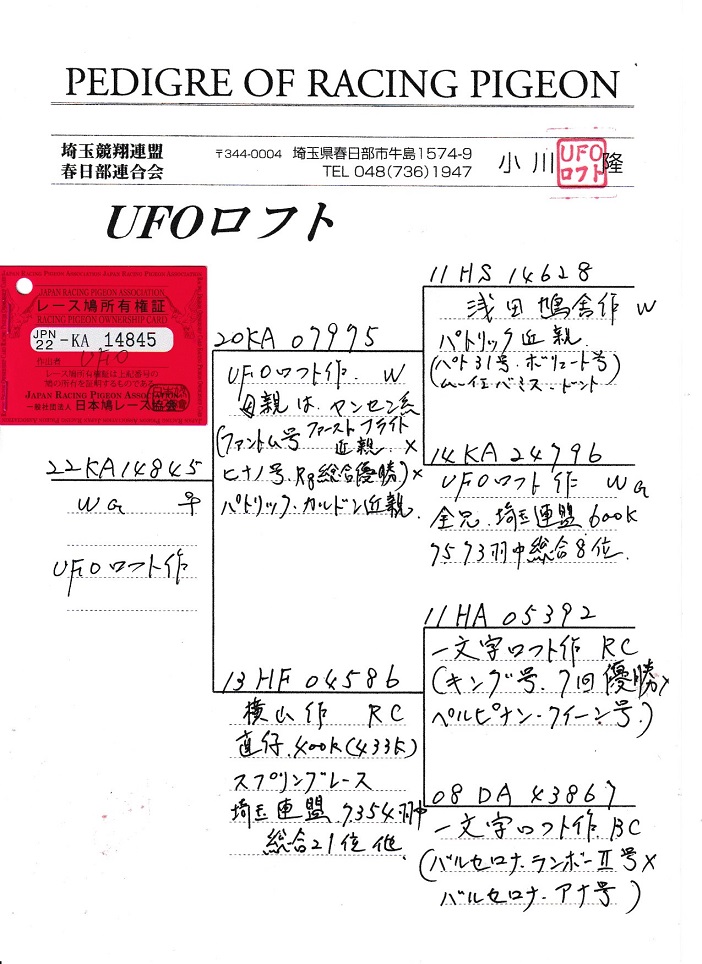 PEDIGRE OF RACING PIGEON
埼玉競翔連盟
春日部連合会
〒344-0004 埼玉県春日部市牛島1574-9
TEL 048(736)1947
小川 隆
UFO
ロフト
UFOロフト
JAPAN RACING PIGEON ASSOCIATION
レース鳩所有権証
RACING PIGEON OWNERSHIP CARD
JPN
22 -KA 14845
作出者 UFO
レース鳩所有権は上記番号の
鳩の所有を証明するものである
JAPAN RACING PIGEON ASSOCIATION
一般社団法人 日本鳩レース協会
22KA14845
W G ♀
UFOロフト作
20KA 07975
UFOロフト作. W
母親は ヤンセン系
(ファントム号 ファーストフライト
近親 ×
ヒナノ号、Rg総合優勝)×
パトリック・カルドン近親
13 HF 04586
横山作 RC
直仔.400K(433K)
スプリングレース
埼玉連盟 7354羽中
総合21位 他
11 HS 14628
浅田鳩舎作 W
パトリック近親
(パト31号・ボリュート号)
14KA 24796
UFOロフト作 W G
全兄.埼玉連盟600K
7573羽中総合8位.
11 HA 05392
一文字ロフト作 RC
(キング号.7回優勝×
ペルピナン・クイーン号.)
08 DA 43867
一文字ロフト作.BC
(バルセロナ.ランボーII号×
バルセロナ.アナ号)